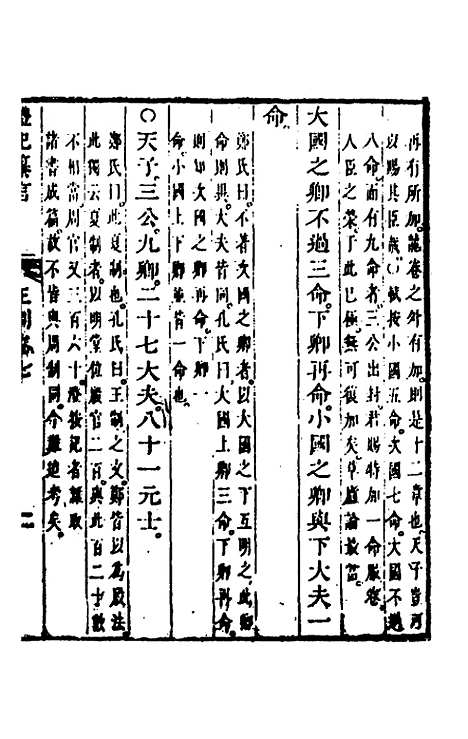 再有所加。說卷之外有加。則是十二章也。天子豈可
以賜其臣哉〇軾按小國五命。大國七命。大國不過
八命而有九命者。三公出封。若賜特加一命。服卷。
人臣之榮。于此已極。無可復加矣。草廬論最當。
大國之卿不過三命。下卿再命。小國之卿與下大夫一
命。
鄭氏曰。不著次國之卿者。以大國之下互明之。此卿
命則異。大夫皆同。孔氏曰。大國上卿三命。下卿再命
則知次國之卿再命。下卿一
命。小國上下卿並皆一命也。
〇天子三公。九卿。二十七大夫。八十一元士。
鄭氏曰。此夏制也。孔氏曰。王制之文。鄭皆以爲殷法
此獨云夏制者。以明堂位殷官二百。與此百二十數
不相當。周官又三百六十。澄按。記者雜取
諸書成篇。故不皆與周制同。今難追考矣。
禮記纂言 王制卷七 二